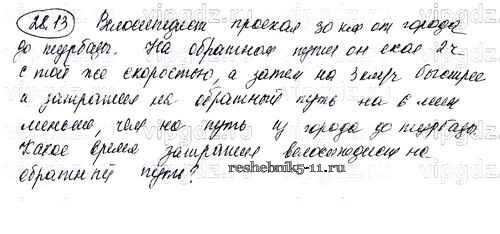 28.13 Велосипедист проехал 30 км от города
до турбазы. На обратном пути он ехал 2 ч
с той же скоростью, а затем на 3 км/ч быстрее
и затратил на обратный путь на 6 мин
меньше, чем на путь из города до турбазы.
Какое время затратил велосипедист на
обратный путь?
reshebnik5-11.ru